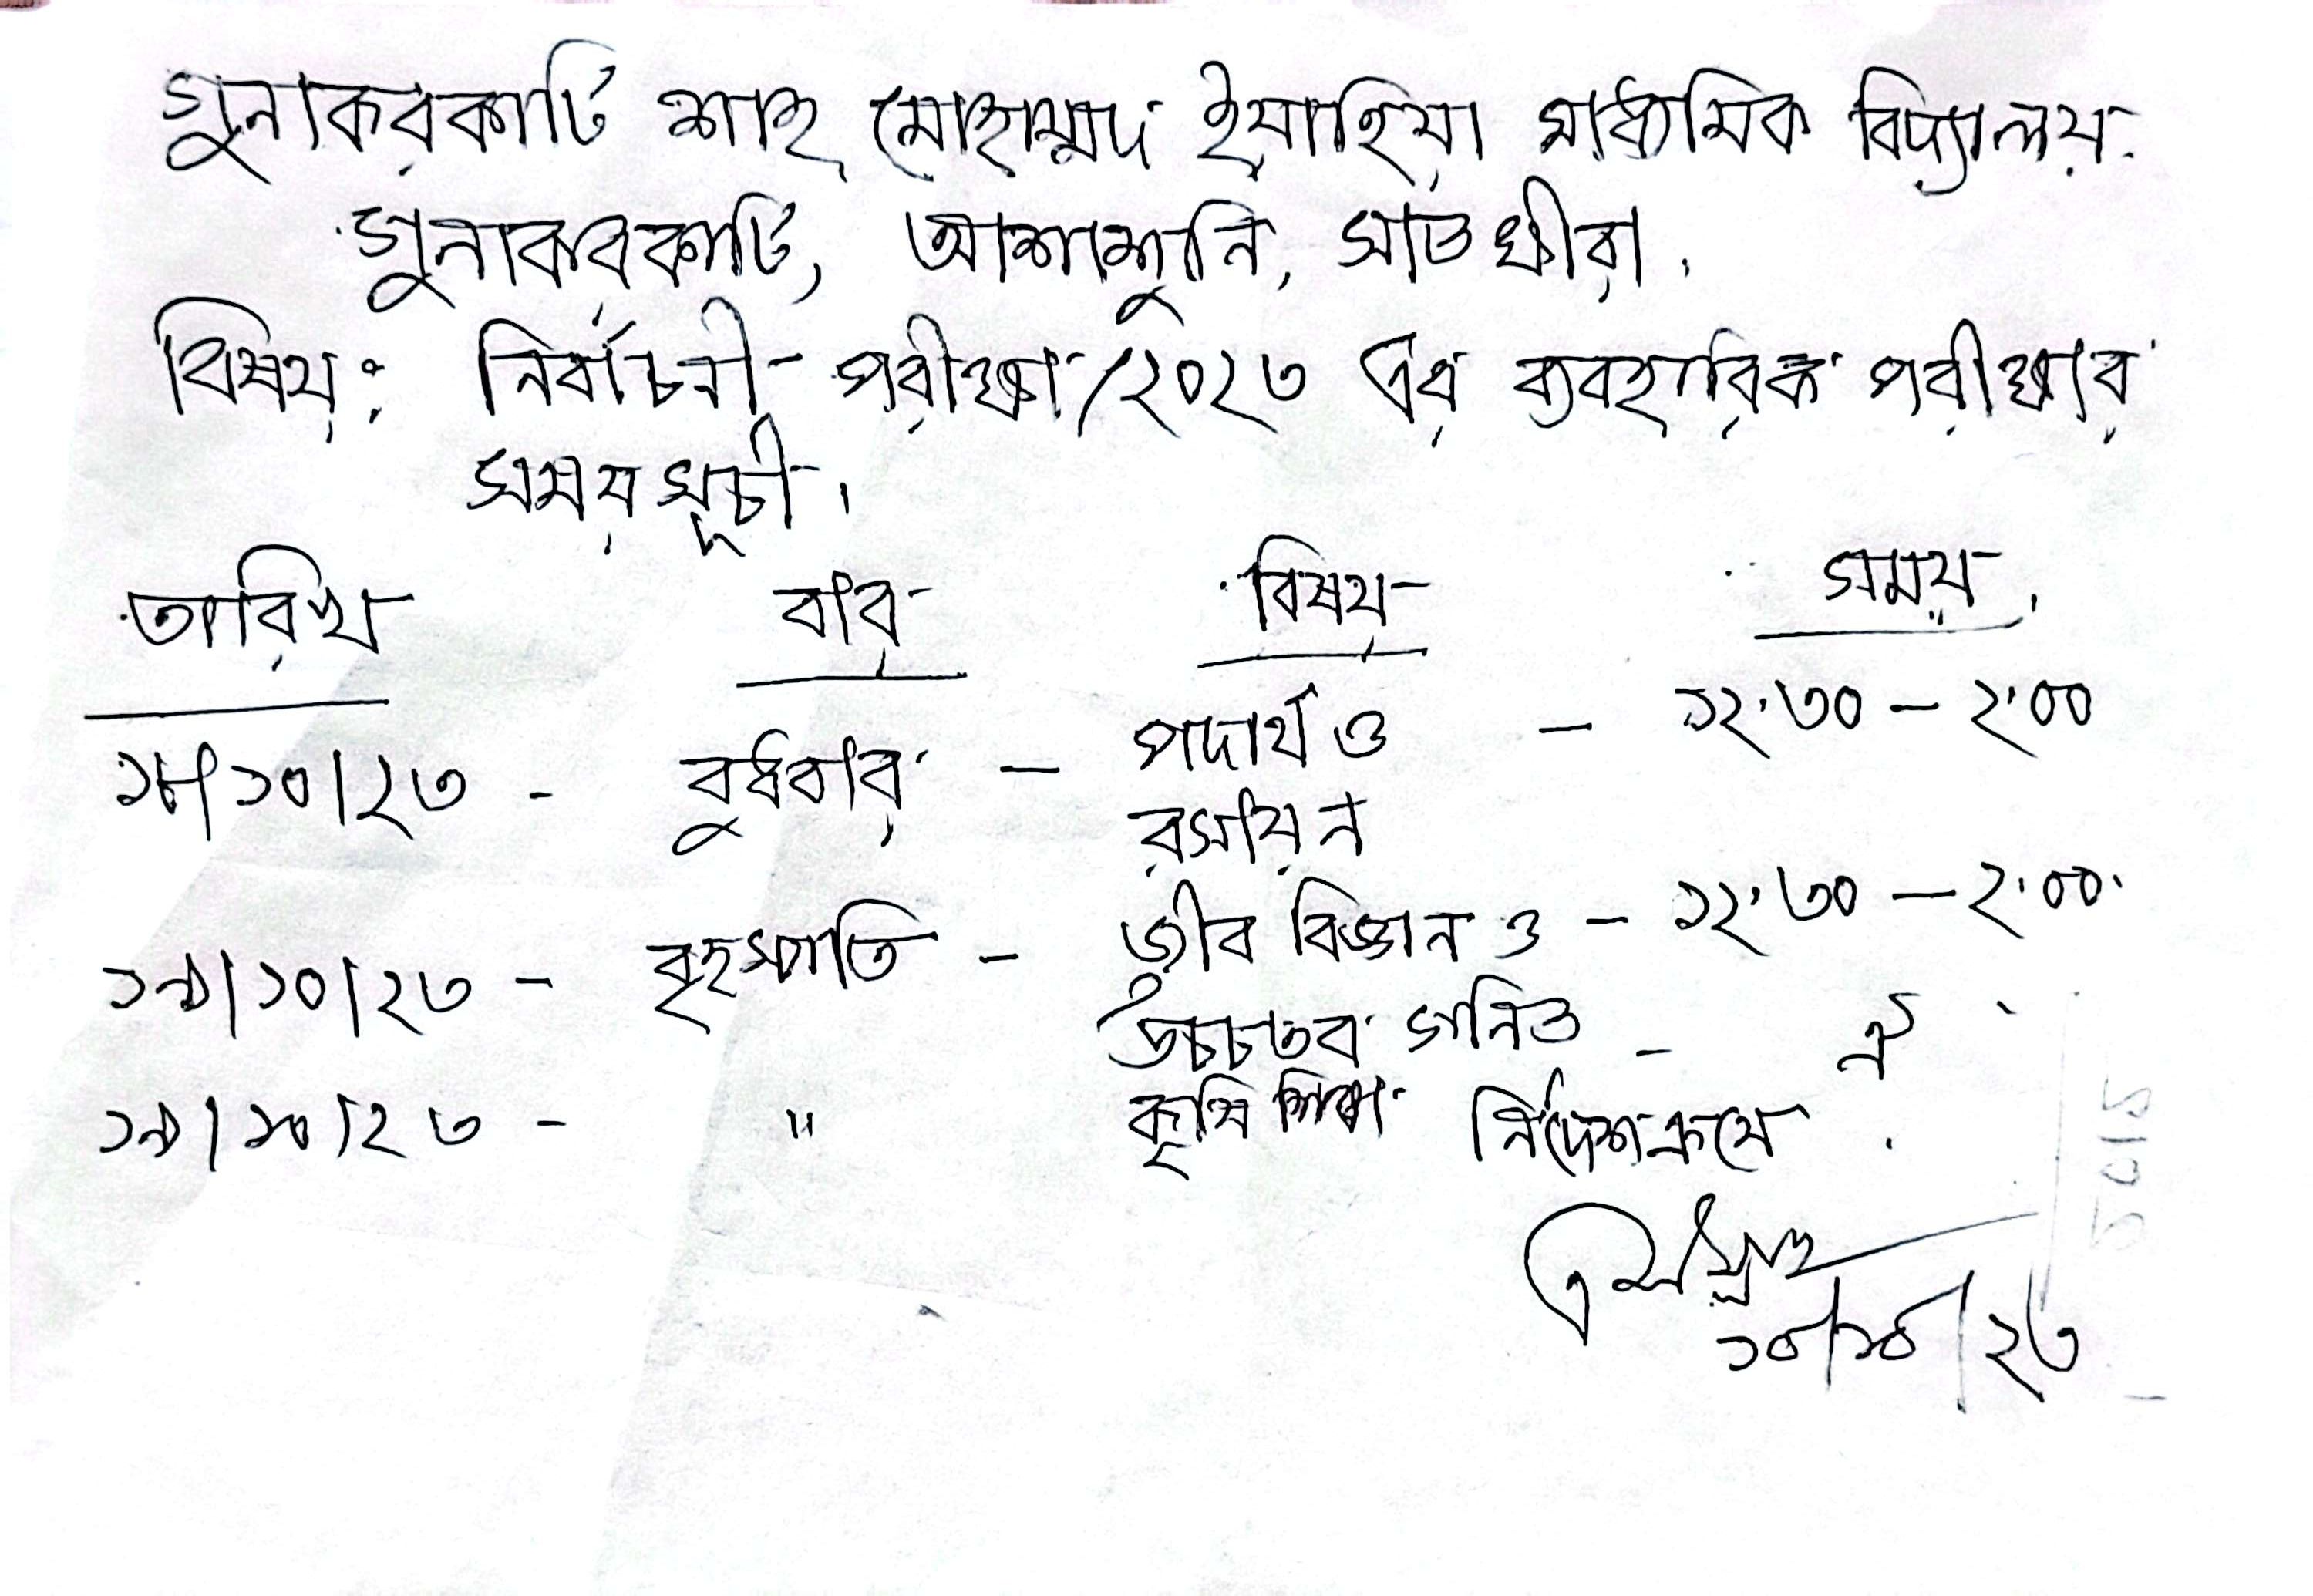 গুনাকরকাটি শাহ্ মোহাম্মদ ইয়াহিয়া মাধ্যমিক বিদ্যালয়.
গুনাকরকাটি, আশাশুনি, সাতক্ষীরা.
বিষয়: নির্বাচনী পরীক্ষা/২০২৩ এর ব্যবহারিক পরীক্ষার
সময়সূচী.
তারিখ বার বিষয় সময়.
১৮/১০/২৩ - বুধবার - পদার্থ ও - ১২.৩০ - ২.০০
রসায়ন
১৯/১০/২৩ - বৃহস্পতি - জীব বিজ্ঞান ও - ১২.৩০ - ২.০০
উচ্চতর গনিত
১৯/১০/২৩ - " কৃষি শিক্ষা - ঐ
নির্দেশক্রমে
/২৩